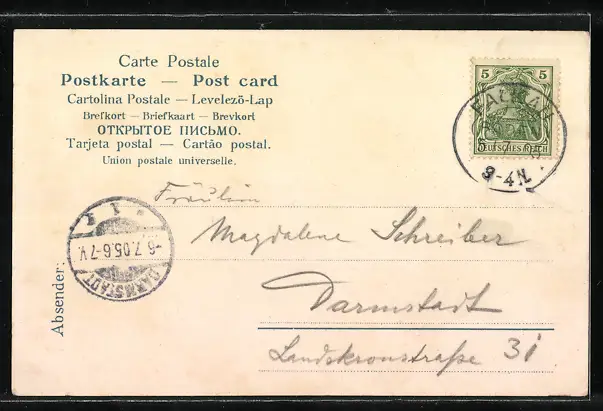 Carte Postale
Postkarte — Post card
Cartolina Postale — Levelező-Lap
Brefkort — Briefkaart — Brevkort
ОТКРЫТОЕ ПИСЬМО.
Tarjeta postal — Cartão postal.
Union postale universelle.
5 5
DEUTSCHES REICH
3-4 N.
Fräulein
Magdalene Schreiber
Darmstadt
Landskronstraße 31
-6.7.05.6-7V.
DARMSTADT
Absender: